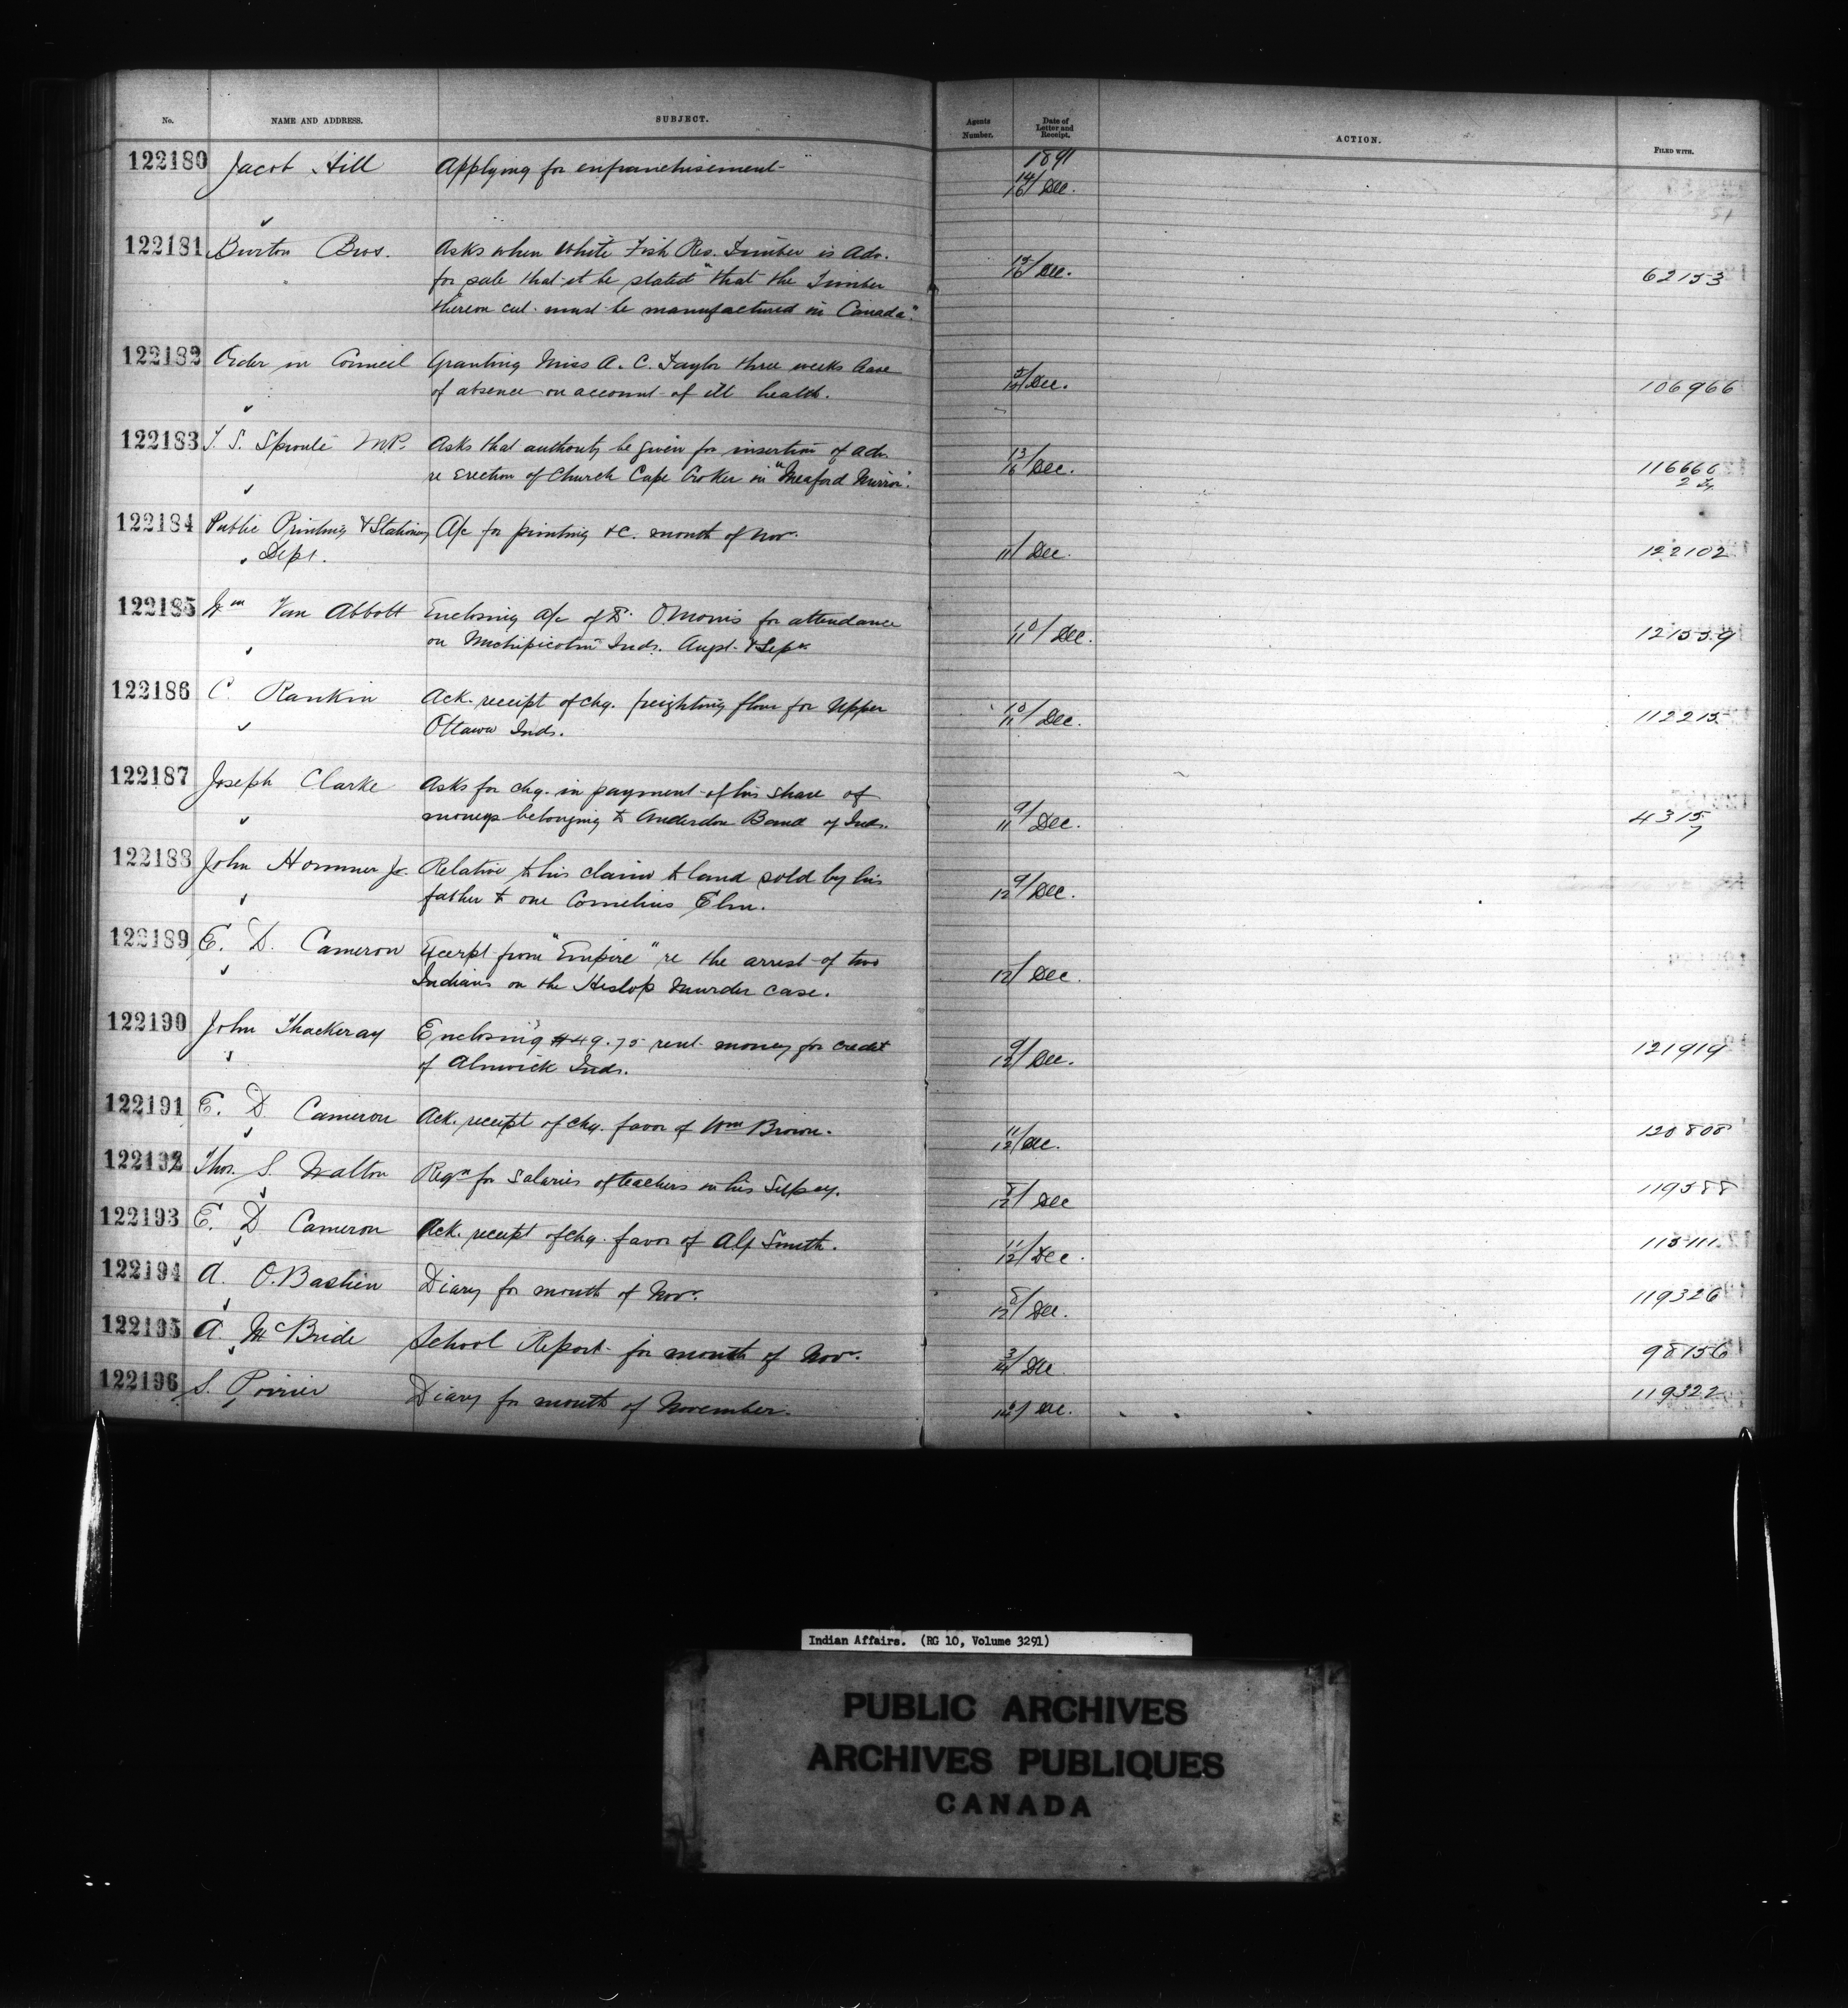 No. NAME AND ADDRESS. SUBJECT. Agents Number. Date of Letter and Receipt. ACTION. FILED WITH.
122180 Jacob Hill Applying for enfranchisement 1891
14/16 Dec.
122181 Burton Bros. Asks when White Fish Res. Timber is adv.
for sale that it be stated "that the Timber 15/16 Dec. 62153
thereon cut must be manufactured in Canada".
122182 Order in Council Granting Miss A. C. Taylor three weeks leave
of absence on account of ill health. Dec. 106966
122183 T. S. Sproule M.P. Asks that authority be given for insertion of adv.
re Erection of Church Cape Croker in "Meaford Mirror". 13/16 Dec. 116666
2
122184 Public Printing & Stationery A/c for printing &c. month of Nov.
Dept. 11/ Dec. 122102
122185 Wm Van Abbott Enclosing a/c of Dr. O. Morris for attendance
on Michipicoten Inds. Augt. & Sepr. 10/11 Dec. 121559
122186 C. Rankin Ack. receipt of chq. freighting flour for Upper
Ottawa Inds. 10/11 Dec. 112215
122187 Joseph Clarke Asks for chq. in payment of his share of
moneys belonging to Anderdon Band of Inds. 9/11 Dec. 4315
7
122188 John Hommer Jr. Relative to his claim to land sold by his
father to one Cornelius Elm. 9/12 Dec.
122189 E. D. Cameron Excerpt from "Empire" re the arrest of two
Indians on the Heslop Murder case. 12/ Dec.
122190 John Thackeray Enclosing $49.75 rent money for credit
of Alnwick Inds. 9/12 Dec. 121919
122191 E. D. Cameron Ack. receipt of chq. favor of Wm Brown. 11/12 Dec. 120808
122192 Thos. S. Walton Reqn for Salaries of teachers in his Supcy. 8/12 Dec 119588
122193 E. D. Cameron Ack. receipt of chq. favor of Alf Smith. 11/12 Dec. 115111
122194 A. O. Bastien Diary for month of Novr. 8/12 Dec. 119326
122195 A. McBride School Report for month of Novr. 3/14 Dec 98156
122196 S. Poirier Diary for month of November. Dec. 119322
Indian Affairs. (RG 10, Volume 3291)
PUBLIC ARCHIVES
ARCHIVES PUBLIQUES
CANADA